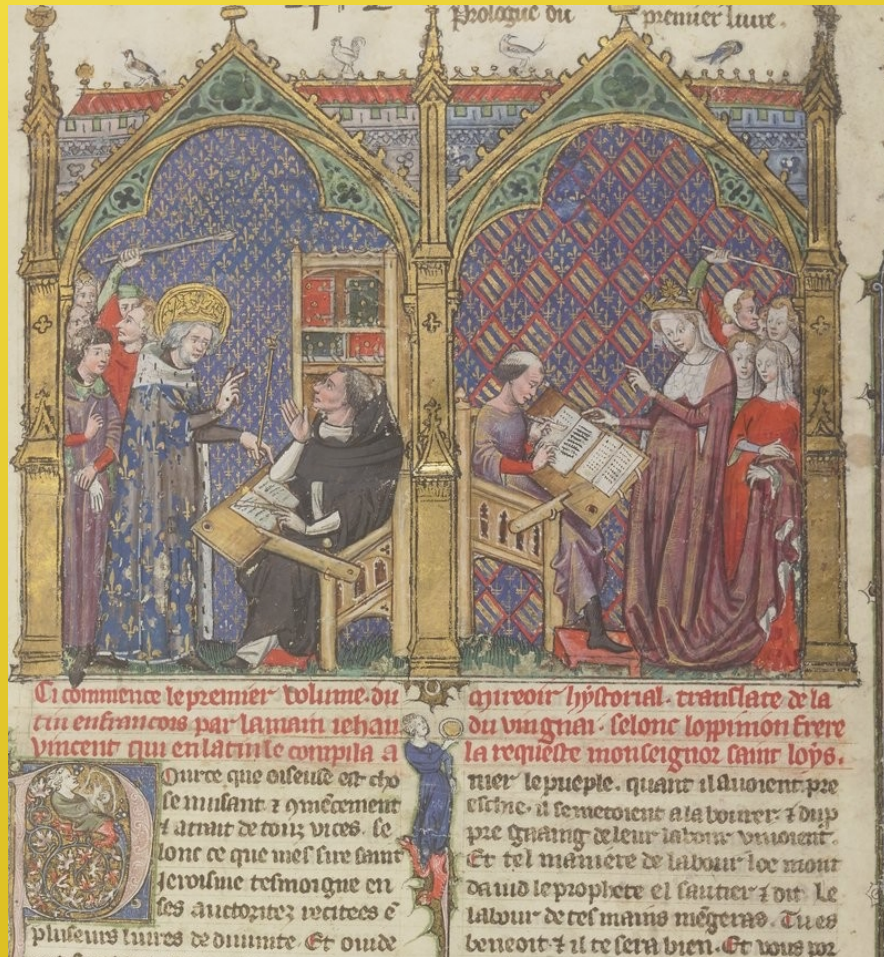 Prologue du premier liure.
Ci commence le premier volume. du
mireoir hystorial. translate de la
tin en francois par la main iehan
du vingnai. selonc loppinion frere
vincent qui en latin le compila a
la requeste monseignor saint loys.
Pource que oiseuse est cho
se nuisant ⁊ ꝯmēcement
⁊ atrait de touz vices. se
lonc ce que mes sire saint
Jeroisme tesmoigne en
ses auctoritez recitees ē
pluseurs liures de diuinite. Et ouide
nier le pueple. quant il auoient pre
eschie. il se metoient a labourer. ⁊ du p
pre gaaing de leur labour viuoient.
Et tel maniere de labour loe mont
dauid le prophete el sautier ⁊ dit. Le
labour de tes mains mēgeras. Tu es
beneoit ⁊ il te sera bien. Et vous